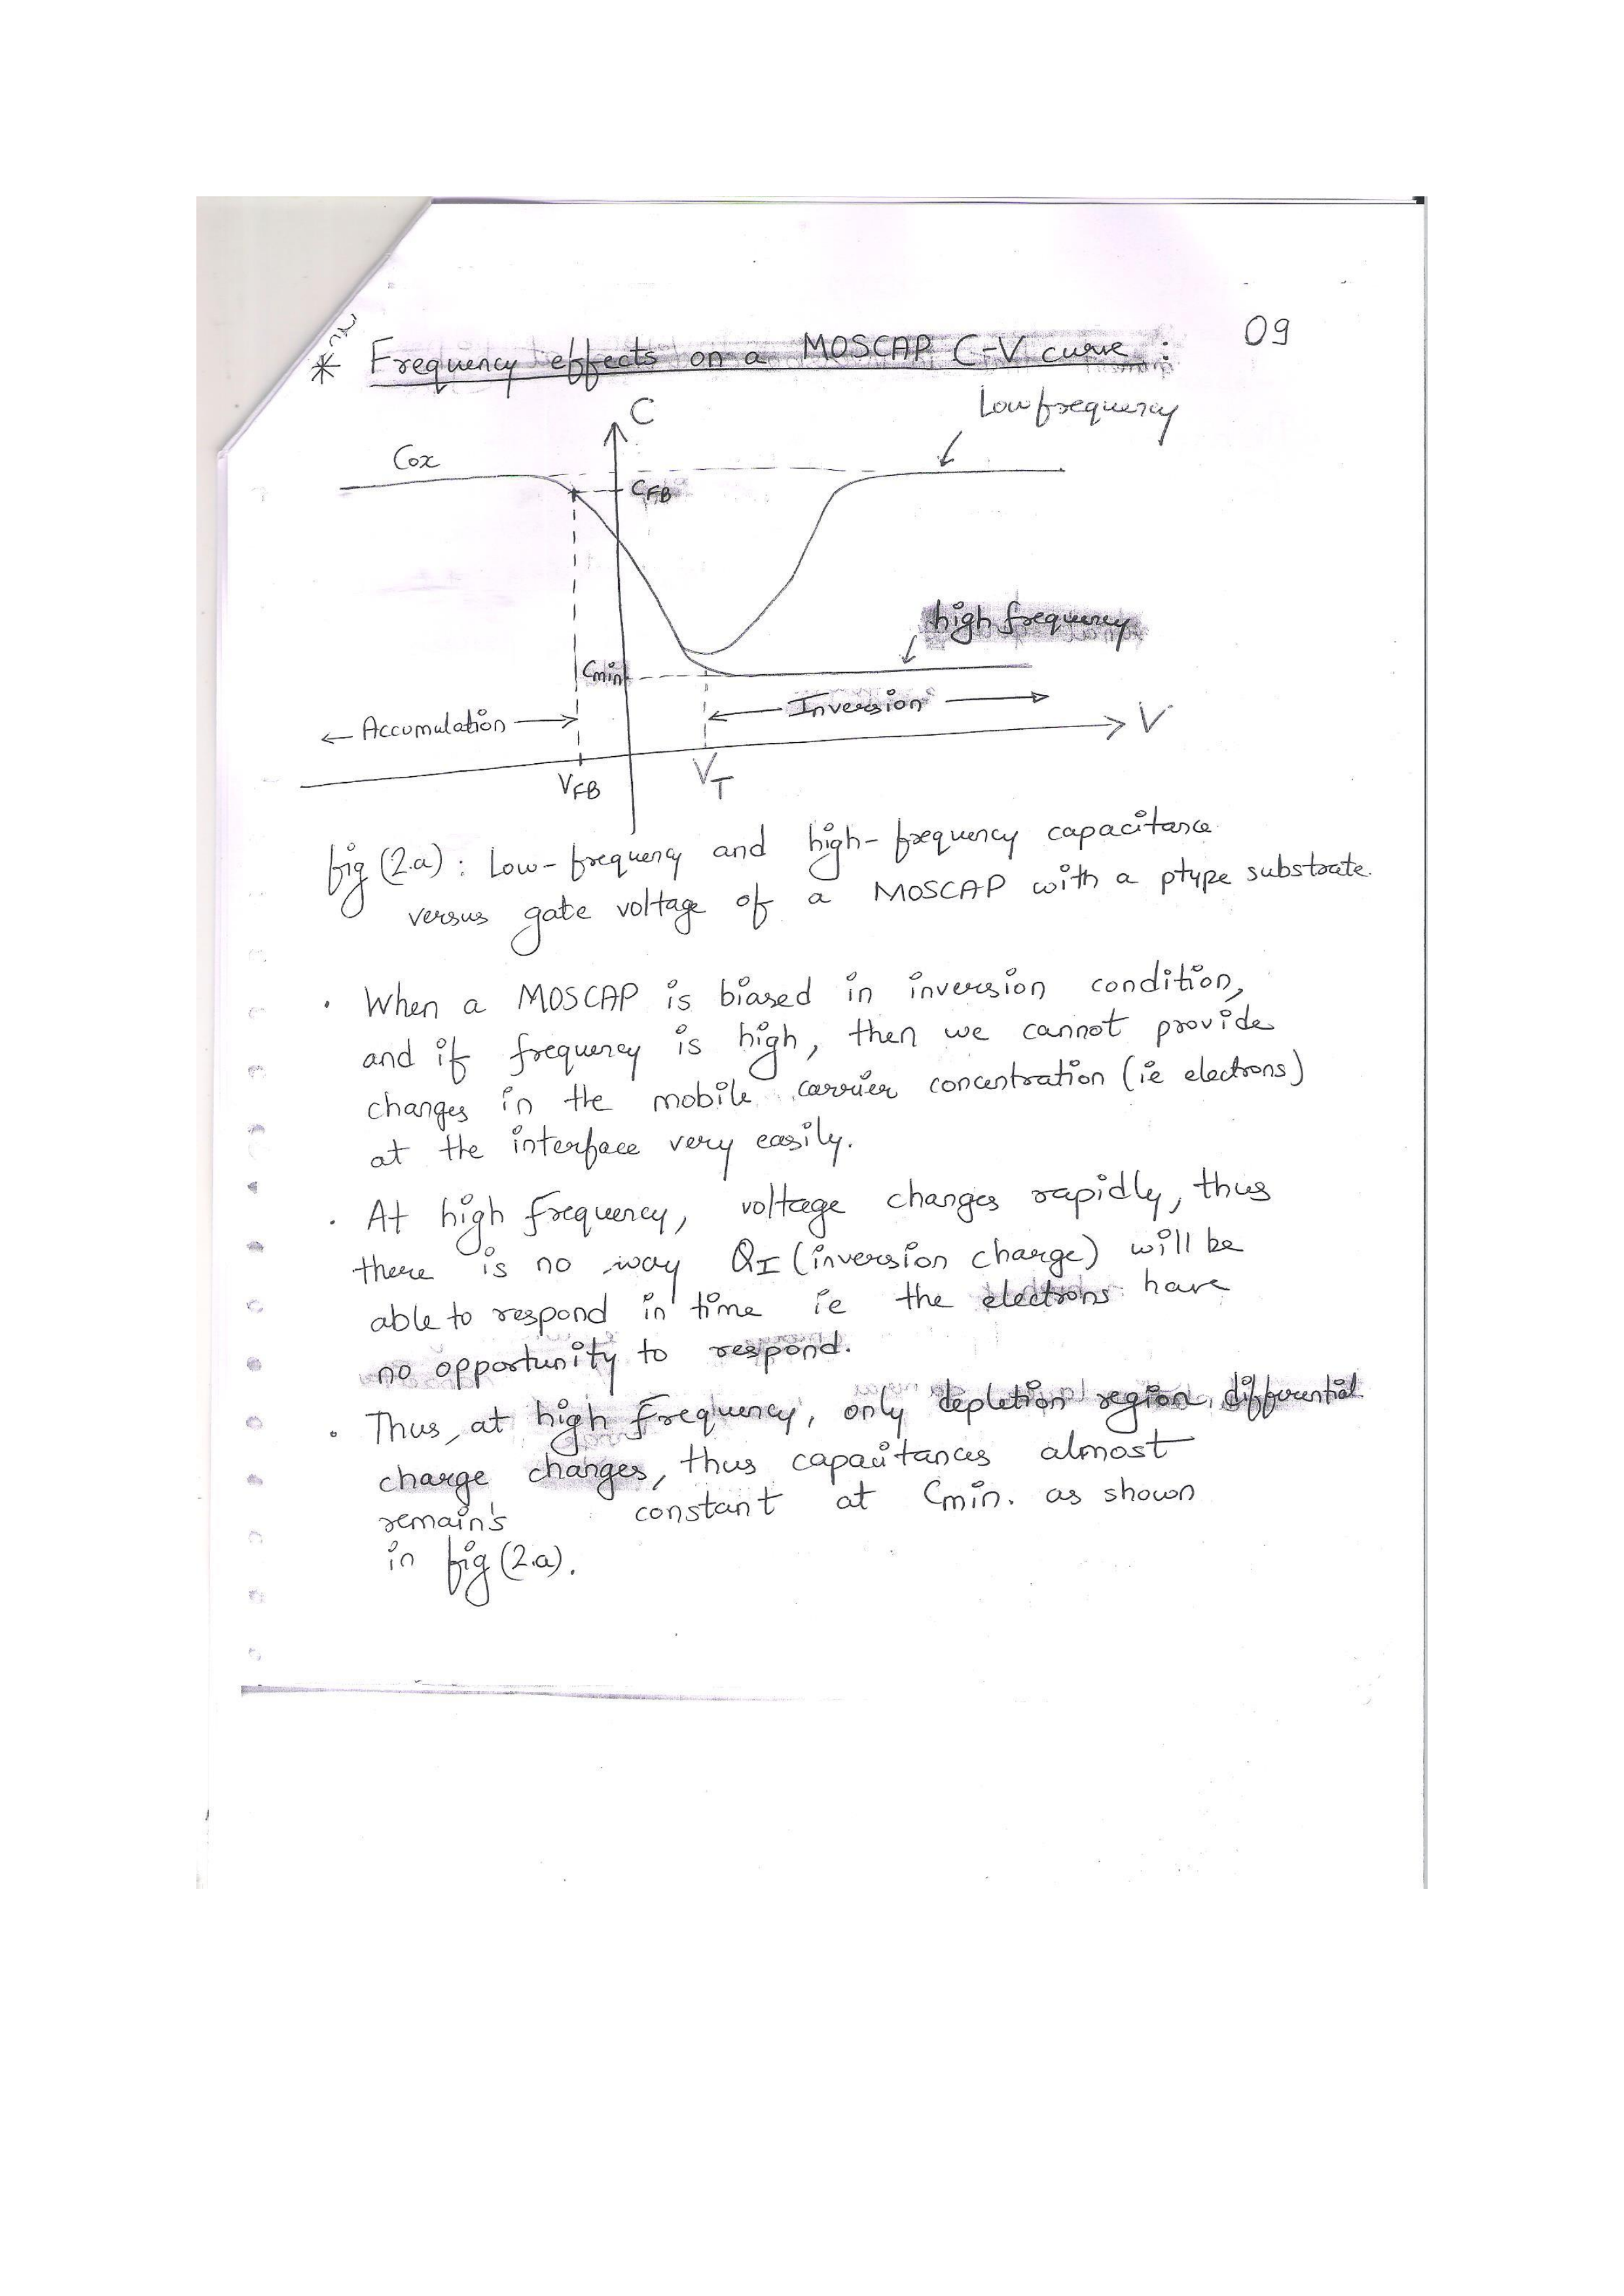 09
* Frequency effects on a MOSCAP C-V curve :
C
Low frequency
Cox
CFB
high frequency
Cmin
← Accumulation →
← Inversion →
V
VFB
VT
fig (2.a) : Low-frequency and high-frequency capacitance
versus gate voltage of a MOSCAP with a ptype substrate.
· When a MOSCAP is biased in inversion condition,
and if frequency is high, then we cannot provide
changes in the mobile carrier concentration (ie electrons)
at the interface very easily.
· At high frequency, voltage changes rapidly, thus
there is no way QI (inversion charge) will be
able to respond in time ie the electrons have
no opportunity to respond.
· Thus, at high Frequency, only depletion region differential
charge changes, thus capacitances almost
remain's constant at Cmin. as shown
in fig (2.a).